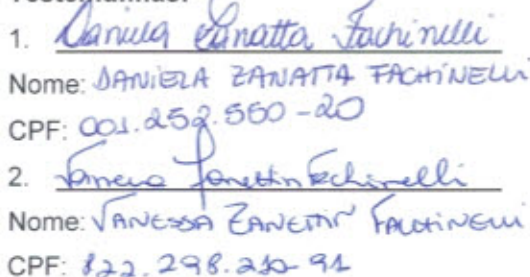 Testemunhas:
1. Daniela Zanatta Fachinelli
Nome: DANIELA ZANATTA FACHINELLI
CPF: 001.252.560-20
2. Vanessa Zanettin Fachinelli
Nome: VANESSA ZANETTIN FACHINELLI
CPF: 822.298.230-91